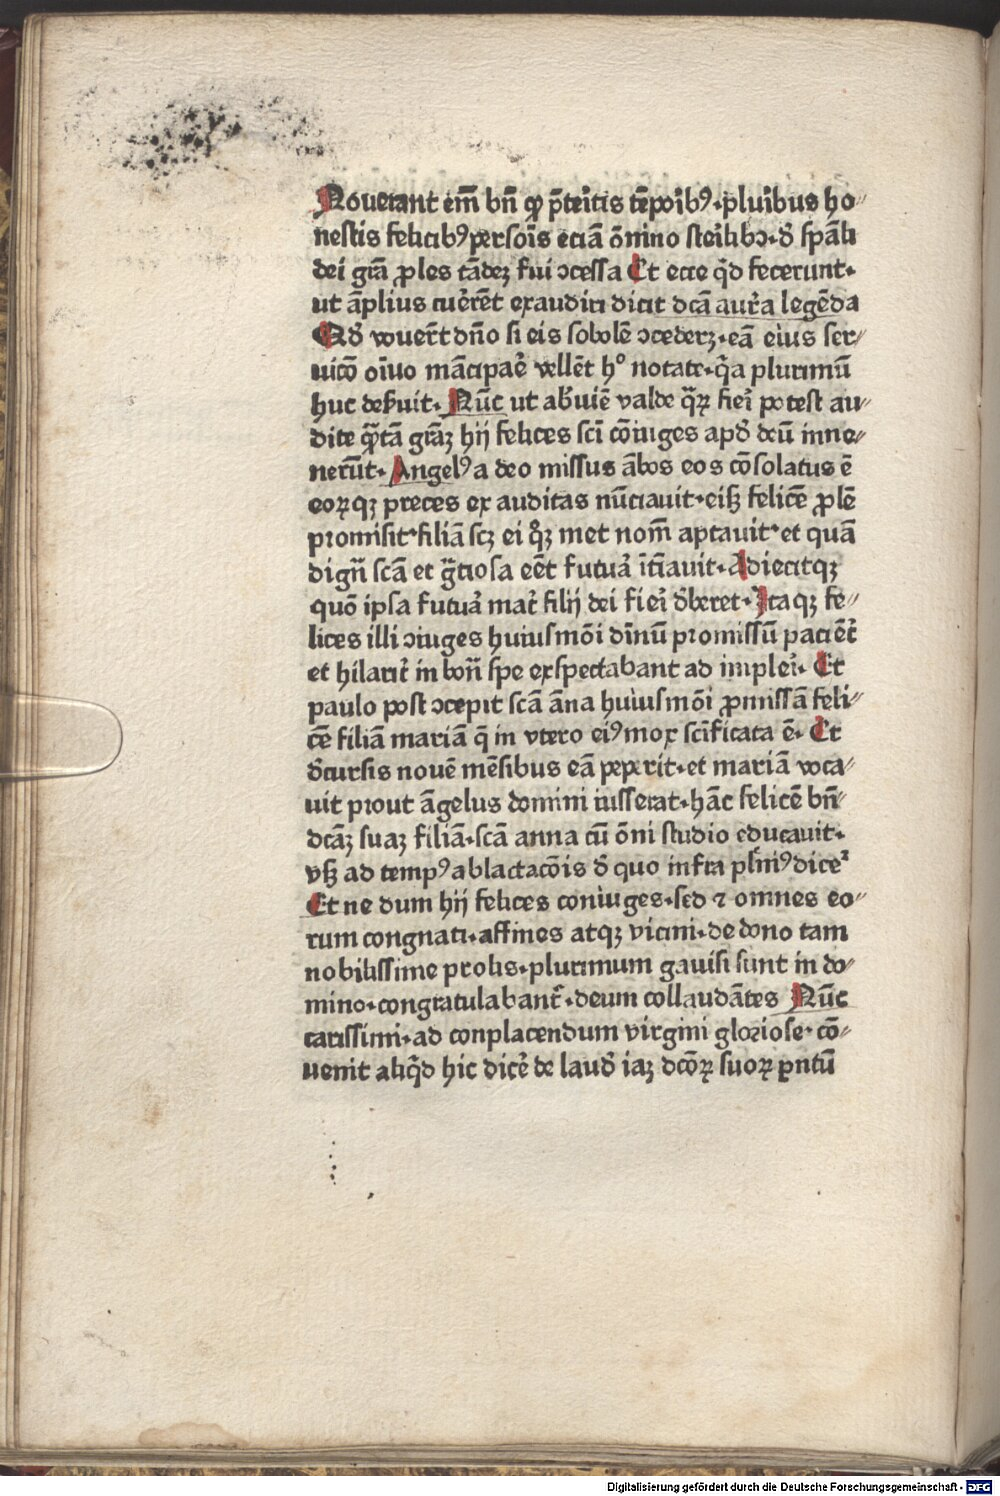 Nouerant em̄ bn̄ ꝙ p̄teritis tēporibꝰ·pluribus ho⸗
nestis felicibꝰ persoīs eciā ōnino sterilibꝫ·d̄ sp̄ali
dei grā ꝓles tādeꝫ fui ꝯcessa Et ecce qd̄ fecerunt·
ut āplius cuērēt exaudiri dicit dcā aurea legēda
Qd̄ vouer̄t dn̄o si eis sobolē ꝯcederꝫ·eā eius ser⸗
uicō oīuo mācipar̄e vellēt hᵒ notate·qr̄a plurimū
huc defuit· Nūc ut abr̄uiē valde q̄rꝝ fieri potest au⸗
dite q̄tā grāꝫ hij felices sc̄i cōiuges apd̄ deū inue⸗
nerūt· Angelꝰ a deo missus ābos eos cōsolatus ē
eorꝝqꝫ preces ex auditas nūciauit·eisꝫ felicē ꝓlē
promisit·filiā scꝫ ei qꝫ met nom̄ aptauit·et quā
dign̄ scā et gr̄ciosa eēt futura īt̄iauit· Adiecitqꝫ
quō ipsa futura mat̄ filij dei fieri d̄beret· Itaqꝫ fe⸗
lices illi ꝯiuges huiusmōi diuinū promissū pacien̄t
et hilarit̄ in bon̄ spe exspectabant ad impleri· Et
paulo post ꝯcepit scā āna huiusmōi ꝓmissā feli⸗
cē filiā mariā q̄ in vtero eiꝰ mox scīficata ē· Et
d̄cursis nouē mēsibus eā peperit·et mariā voca⸗
uit prout āgelus domini iusserat·hāc felicē bn̄⸗
dcāꝫ suaꝫ filiā·scā anna cū ōni studio educauit·
vsꝫ ad tempꝰ ablactacōis d̄ quo infra pleniꝰ dicer̄
Et ne dum hij felices coniuges·sed ⁊ omnes eo⸗
rum congnati·affines atqꝫ vicini·de dono tam
nobilissime prolis·plurimum gauisi sunt in do⸗
mino·congratulabant̄·deum collaudātes Nūc
carissimi·ad conplacendum virgini gloriose·cō⸗
uenit aliqd̄ hic dicēr de laud̄ iaꝫ dcōꝝ suoꝝ ꝑntū
Digitalisierung gefördert durch die Deutsche Forschungsgemeinschaft - DFG